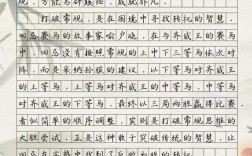 规，方能另辟蹊径，成就非凡。
打破常规，是在困境中寻找转机的智慧。
田忌赛马的故事家喻户晓，在与齐威王的赛马
中，田忌没有按照常规的上中下三等马依次对
阵，而是采纳孙膑的建议，以下等马对齐威王
的上等马，上等马对齐威王的中等马，中等马
对齐威王的下等马，最终以三局两胜赢得比赛。
看似简单的顺序调整，实则是打破常规思维的
大胆尝试。正是这种敢于突破传统的智慧，让